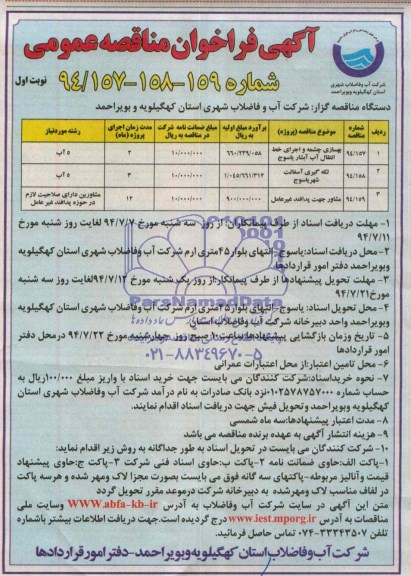 آگهی فراخوان مناقصه عمومی
شماره ۱۵۹-۱۵۸-۹۴/۱۵۷
نوبت اول
شرکت آب وفاضلاب شهری
استان کهگیلویه وبویراحمد
دستگاه مناقصه گزار: شرکت آب و فاضلاب شهری استان کهگیلویه و بویراحمد
ردیف شماره مناقصه موضوع مناقصه (پروژه) برآورد مبلغ اولیه به ریال مبلغ ضمانت نامه شرکت در مناقصه به ریال مدت زمان اجرای پروژه (ماه) رشته موردنیاز
۱ ۹۴/۱۵۷ بهسازی چشمه و اجرای خط انتقال آب آبشار یاسوج ۶۶۰/۲۳۹/۰۵۸ ۱۰/۰۰۰/۰۰۰ ۲ ۵ آب
۲ ۹۴/۱۵۸ لکه گیری آسفالت شهریاسوج ۱/۰۴۵/۶۶۱/۳۱۲ ۱۰/۰۰۰/۰۰۰ ۳ ۵ آب
۳ ۹۴/۱۵۹ مشاور جهت پدافند غیرعامل ۹۰۰/۰۰۰/۰۰۰ ۱۰/۰۰۰/۰۰۰ ۱۲ مشاورین دارای صلاحیت لازم در حوزه پدافند غیرعامل
۱- مهلت دریافت اسناد از طرف پیمانکاران: از روز سه شنبه مورخ ۹۴/۷/۷ لغایت روز شنبه مورخ
۹۴/۷/۱۱
۲- محل دریافت اسناد:یاسوج-انتهای بلوار۴۵متری ارم شرکت آب وفاضلاب شهری استان کهگیلویه
وبویراحمد دفتر امور قراردادها
۳- مهلت تحویل پیشنهادها از طرف پیمانکار:از روز یک شنبه مورخ ۹۴/۷/۱۲لغایت روز سه شنبه
مورخ۹۴/۷/۲۱
۴- محل تحویل اسناد: یاسوج-انتهای بلوار۴۵متری ارم شرکت آب وفاضلاب شهری استان کهگیلویه
وبویراحمد واحد دبیرخانه شرکت آب وفاضلاب استان
۵- تاریخ وزمان بازگشایی پیشنهادها:ساعت۱۰صبح روز چهارشنبه مورخ ۹۴/۷/۲۲ درمحل دفتر
امور قراردادها
۶- محل تامین اعتبار:از محل اعتبارات عمرانی
۷- نحوه خریداسناد:شرکت کنندگان می بایست جهت خرید اسناد با واریز مبلغ ۱۰۰/۰۰۰ریال به
حساب شماره ۰۱۰۲۵۷۸۷۵۷۰۰۰نزد بانک صادرات به نام درآمد شرکت آب وفاضلاب شهری استان
کهگیلویه وبویراحمد وتحویل فیش جهت دریافت اسناد اقدام نمایند.
۸- مدت اعتبار پیشنهادها:سه ماه شمسی
۹- هزینه انتشار آگهی به عهده برنده مناقصه می باشد
۱۰- شرکت کنندگان می بایست در تحویل اسناد به طور جداگانه به روش زیر اقدام نماید:
۱-پاکت الف:حاوی ضمانت نامه ۲-پاکت ب:حاوی اسناد فنی شرکت ۳-پاکت ج:حاوی پیشنهاد
قیمت وآنالیز مربوطه-پاکتهای سه گانه فوق می بایست بصورت مجزا لاک ومهر شده و هرسه پاکت
در لفاف مناسب لاک ومهرشده به دبیرخانه شرکت درموعد مقرر تحویل گردد
متن این آگهی در سایت شرکت آب وفاضلاب به آدرس www.abfa-kb-ir وسایت ملی
مناقصات به آدرس www.iest.mporg.ir درج گردیده است.جهت دریافت اطلاعات بیشتر باشماره
تلفن ۰۷۴-۳۳۳۴۳۵۰۷ تماس حاصل فرمائید.
شرکت آب وفاضلاب استان کهگیلویه وبویراحمد-دفتر امور قراردادها
ParsNamadData
۰۲۱-۸۸۳۴۹۶۷۰-۵